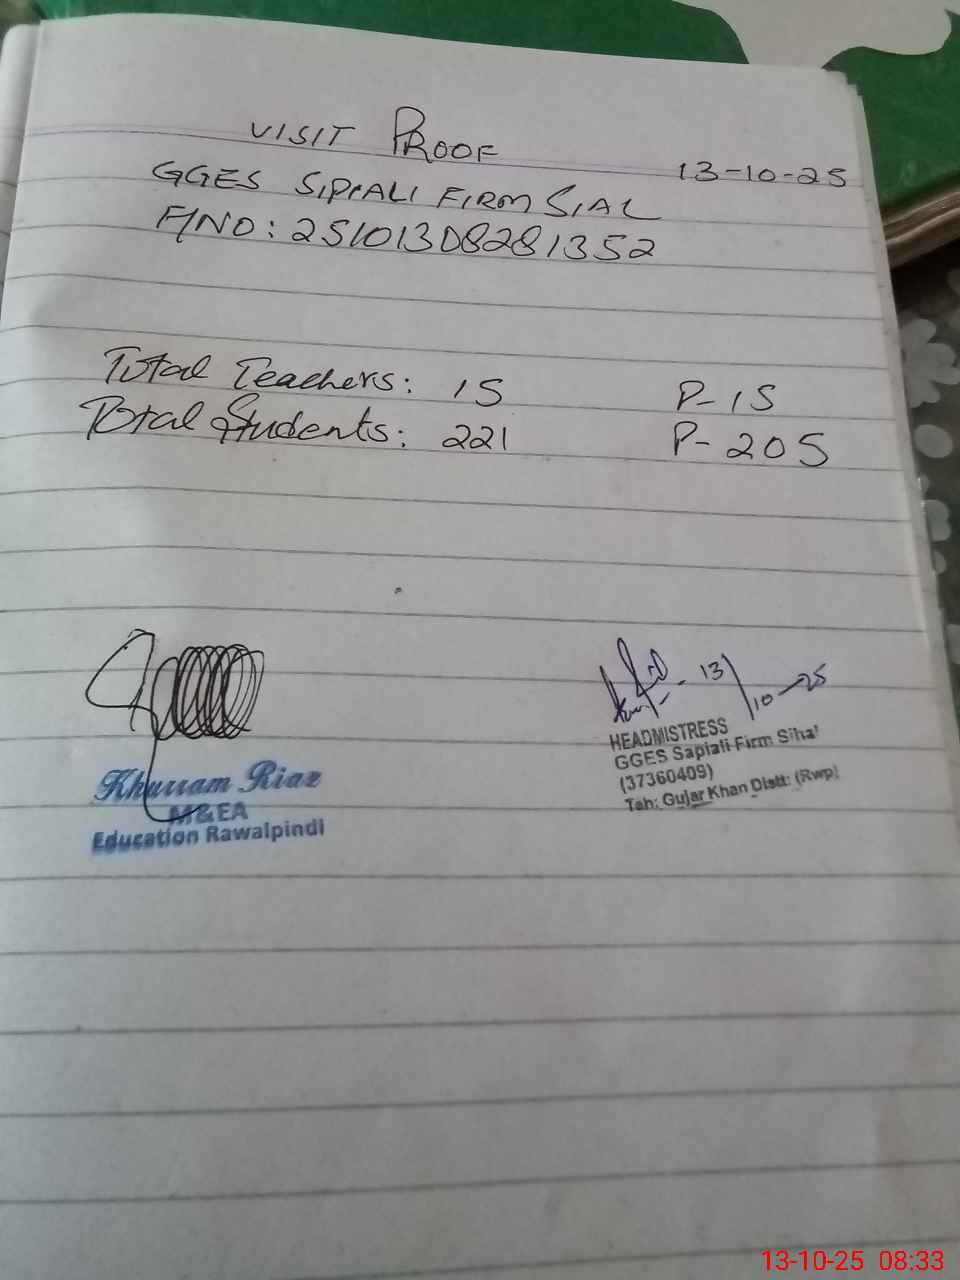 VISIT PROOF
13-10-25
GGES SIPIALI FIRM SIAL
F/NO: 25101308281352
Total Teachers: 15 P-15
Total Students: 221 P-205
13/10-25
Khurram Riaz
M&EA
Education Rawalpindi
HEADMISTRESS
GGES Sapiali Firm Sihal
(37360409)
Teh: Gujar Khan Distt: (Rwp)
13-10-25 08:33